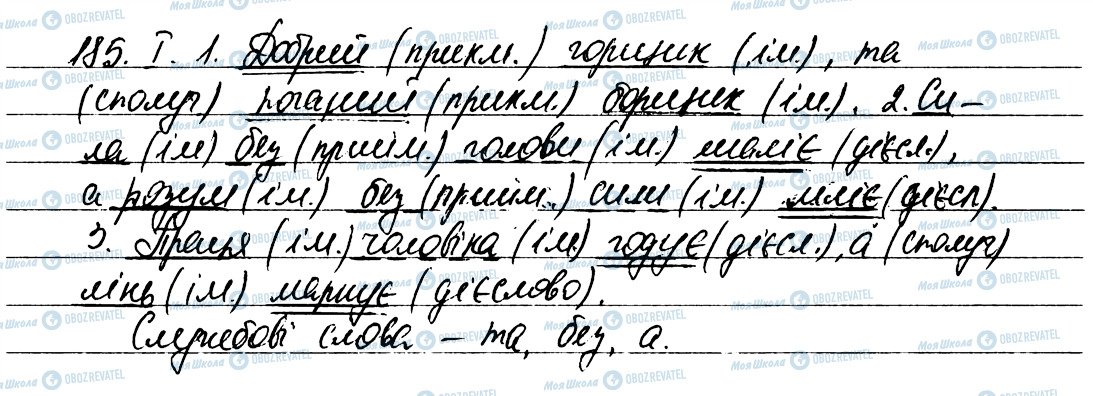 185. І. 1. Добрий (прикм.) горщик (ім.), та
(сполуч) поганий (прикм.) борщик (ім.). 2. Си-
ла (ім) без (прийм.) голови (ім.) шаліє (дієсл.),
а розум (ім.) без (прийм.) сили (ім.) мліє (дієсл).
3. Праця (ім.) чоловіка (ім) годує (дієсл.), а (сполуч)
лінь (ім.) марнує (дієслово).
Службові слова – та, без, а.